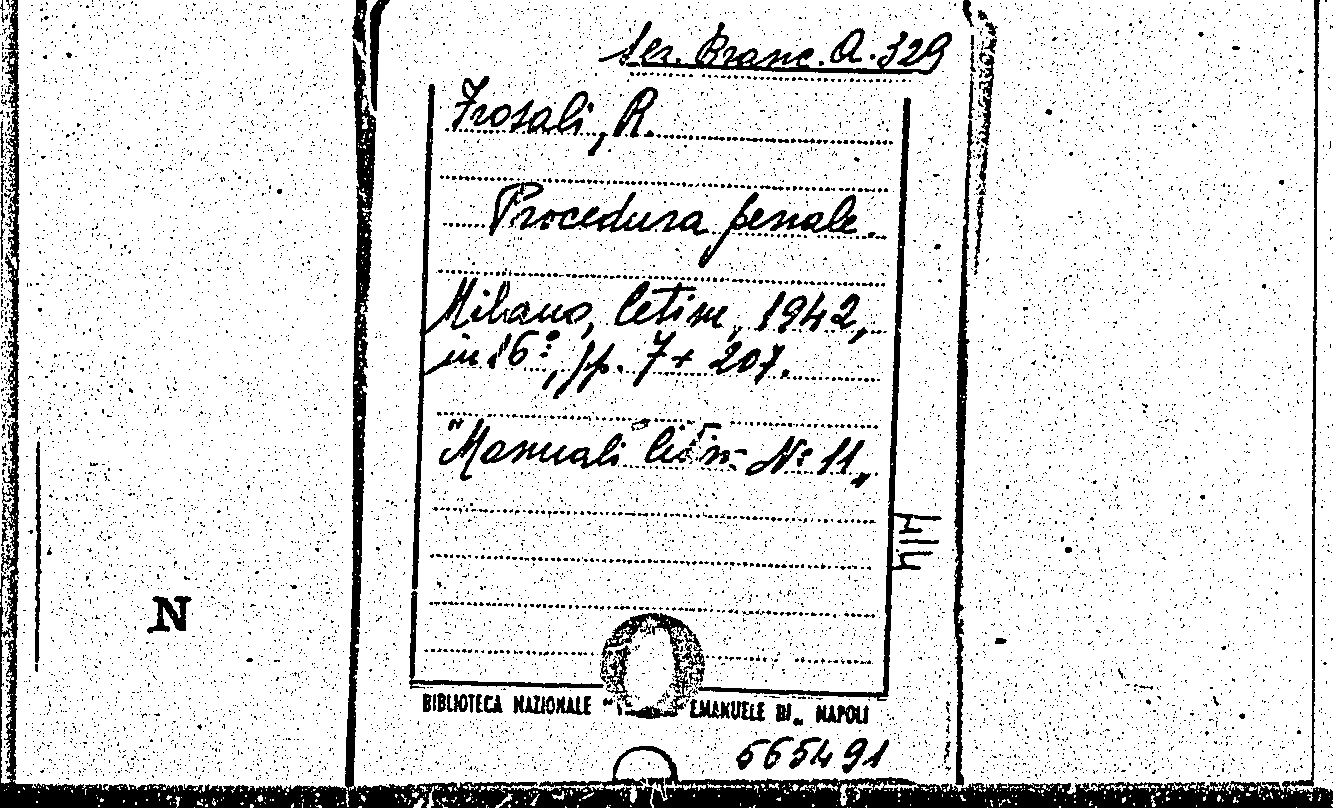 Ser. Branc. A. 329
Frosali, R.
Procedura penale.
Milano, Cetim, 1942,
in 16º, pp. 7+207.
"Manuali Cetim - Nº 11„
N
BIBLIOTECA NAZIONALE " EMANUELE III„ NAPOLI
565491